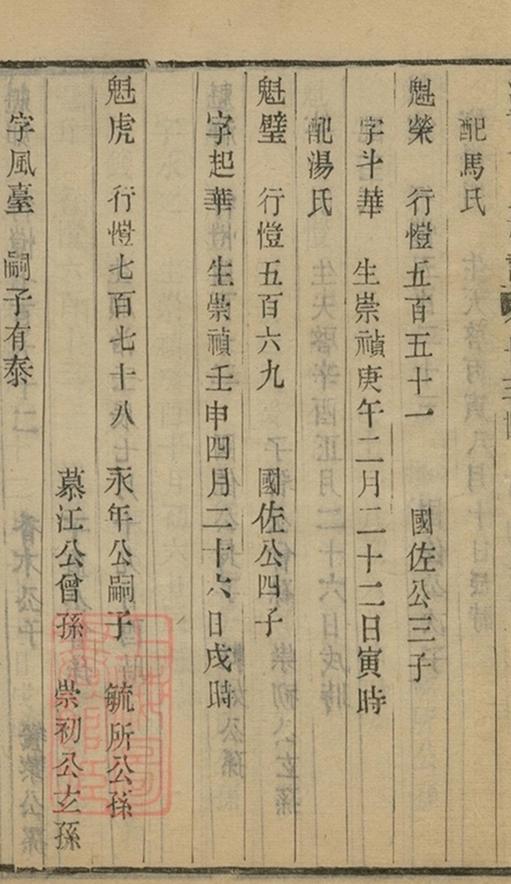 配馬氏
魁榮　行愷五百五十一　國佐公三子
字斗華　生崇禎庚午二月二十二日寅時
配湯氏
魁璧　行愷五百六九　國佐公四子
字起華　生崇禎壬申四月二十六日戌時
魁虎　行愷七百七十八　永年公嗣子　毓所公孫
慕江公曾孫　崇初公玄孫
字風臺　嗣子有泰